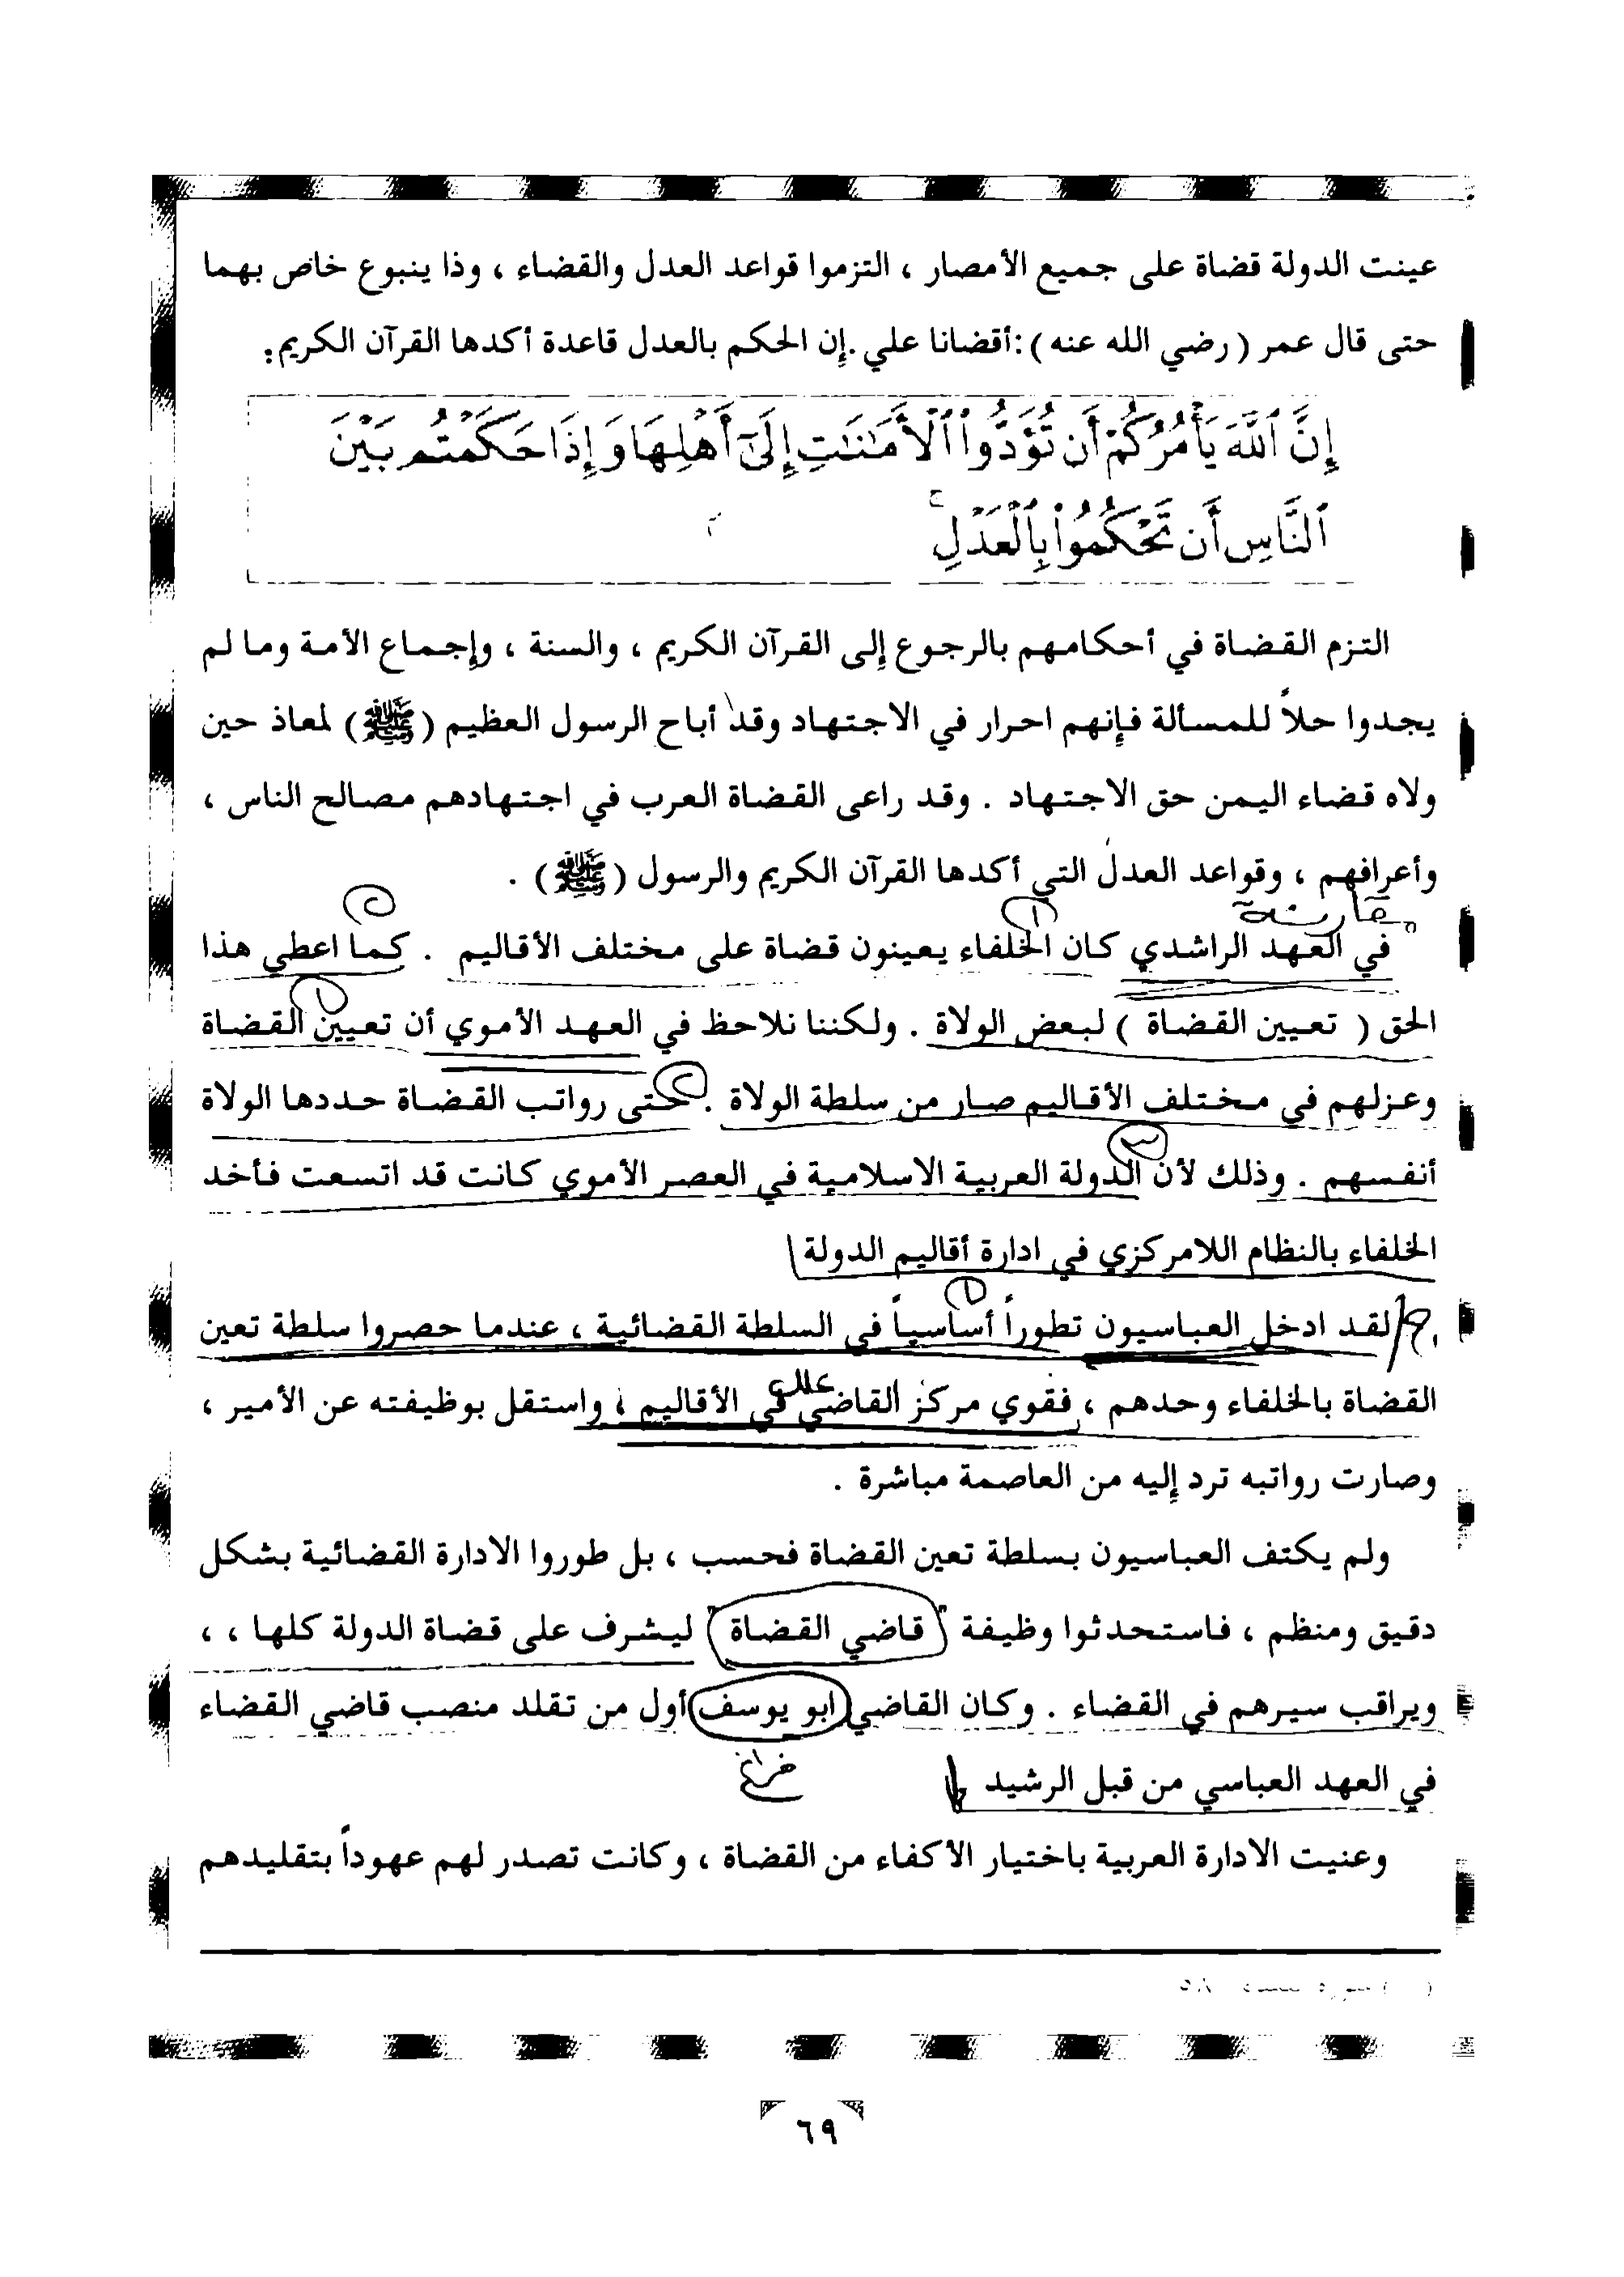 عينت الدولة قضاة على جميع الأمصار ، التزموا قواعد العدل والقضاء ، وذا ينبوع خاص بهما
حتى قال عمر ( رضي الله عنه ) : أقضانا علي . إن الحكم بالعدل قاعدة أكدها القرآن الكريم :
إِنَّ ٱللَّهَ يَأْمُرُكُمْ أَن تُؤَدُّوا۟ ٱلْأَمَٰنَٰتِ إِلَىٰٓ أَهْلِهَا وَإِذَا حَكَمْتُم بَيْنَ
ٱلنَّاسِ أَن تَحْكُمُوا۟ بِٱلْعَدْلِ ۚ
التزم القضاة في أحكامهم بالرجوع إلى القرآن الكريم ، والسنة ، وإجماع الأمة وما لم
يجدوا حلاً للمسألة فإنهم احرار في الاجتهاد وقد أباح الرسول العظيم (ﷺ) لمعاذ حين
ولاه قضاء اليمن حق الاجتهاد . وقد راعى القضاة العرب في اجتهادهم مصالح الناس ،
وأعرافهم ، وقواعد العدل التي أكدها القرآن الكريم والرسول (ﷺ) .
مقارنة ١ ٢
في العهد الراشدي كان الخلفاء يعينون قضاة على مختلف الأقاليم . كما اعطي هذا
١
الحق ( تعيين القضاة ) لبعض الولاة . ولكننا نلاحظ في العهد الأموي أن تعيين القضاة
٢
وعزلهم في مختلف الأقاليم صار من سلطة الولاة . حتى رواتب القضاة حددها الولاة
٣
أنفسهم . وذلك لأن الدولة العربية الاسلامية في العصر الأموي كانت قد اتسعت فأخد
الخلفاء بالنظام اللامركزي في ادارة أقاليم الدولة
١
لقد ادخل العباسيون تطوراً أساسياً في السلطة القضائية ، عندما حصروا سلطة تعين
القضاة بالخلفاء وحدهم ، فقوي مركز القاضي في الأقاليم ، واستقل بوظيفته عن الأمير ،
وصارت رواتبه ترد إليه من العاصمة مباشرة .
ولم يكتف العباسيون بسلطة تعين القضاة فحسب ، بل طوروا الادارة القضائية بشكل
دقيق ومنظم ، فاستحدثوا وظيفة ( قاضي القضاة ) ليشرف على قضاة الدولة كلها ، ،
ويراقب سيرهم في القضاء . وكان القاضي ابو يوسف أول من تقلد منصب قاضي القضاء
في العهد العباسي من قبل الرشيد
وعنيت الادارة العربية باختيار الأكفاء من القضاة ، وكانت تصدر لهم عهوداً بتقليدهم
٦٩